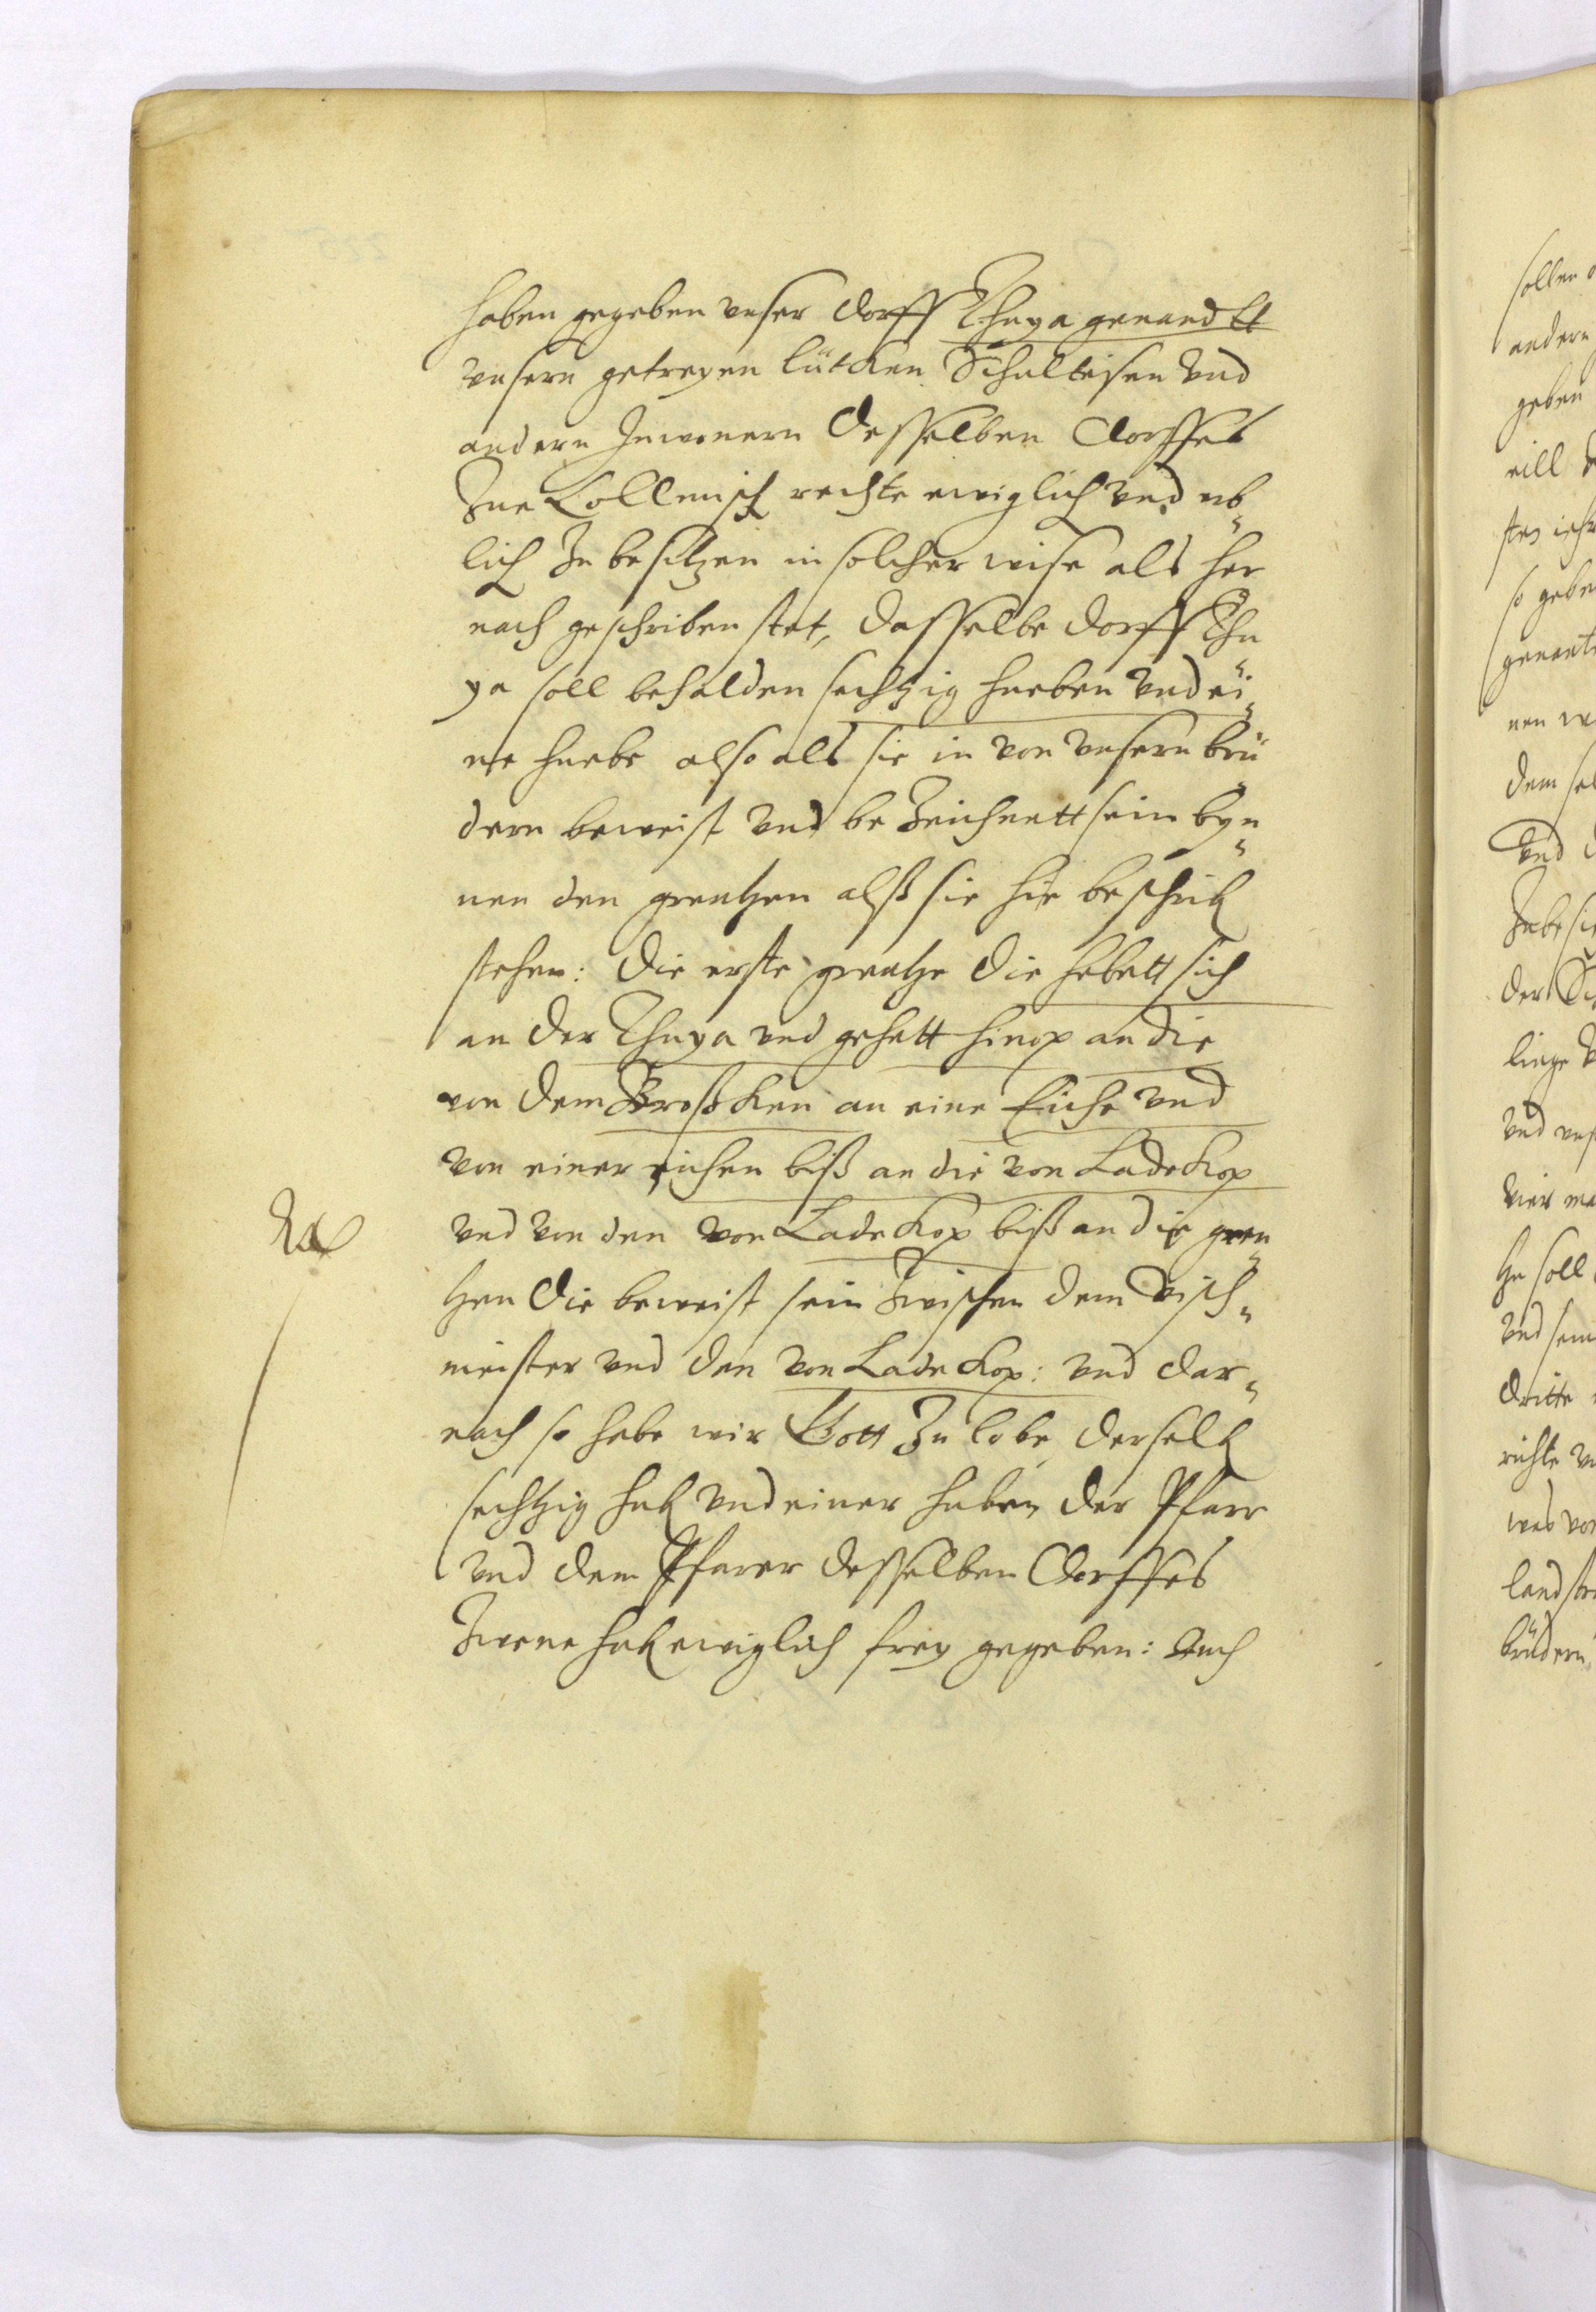 haben gegeben unser dorff Thuya genandtt
unsern getreyen lütcken Schultisen und
andern Inwonern desselben dorffes
Zue Collmisch rechte ewiglich und erb„
lich zu besitzen in solcher wise als her
nach geschriben stet, dasselbe dorff Thu„
ya soll behalden sechtzig hueben und ei„
ne huebe also als sie in von unsern brü„
dern beweist und bezeichnett sein byn„
nen den grentzen alß sie hie beschrib
stehen: die erste grentze die hebett sich
an der Thuya und gehett hinop an die
von dem Broßken an eine Eiche und
von einer eichen biß an die von Ladekop
und von den von Ladekop biß an die gren„
tzen die beweist sein zwischen dem Visch„
meister und den von Ladekop: und dar„
nach so habe wir Gott zu lobe derselb
sechtzig hub und einer huben der Pfarr
und dem Pfarer desselben dorffes
zwene hub ewiglich frey gegeben: Auch
sollen
andern
geben
so geben
genant
nen
dem sel
und
der
und
vier ma
tze soll
und sein
dritte
richte
was vor
land
brüdern